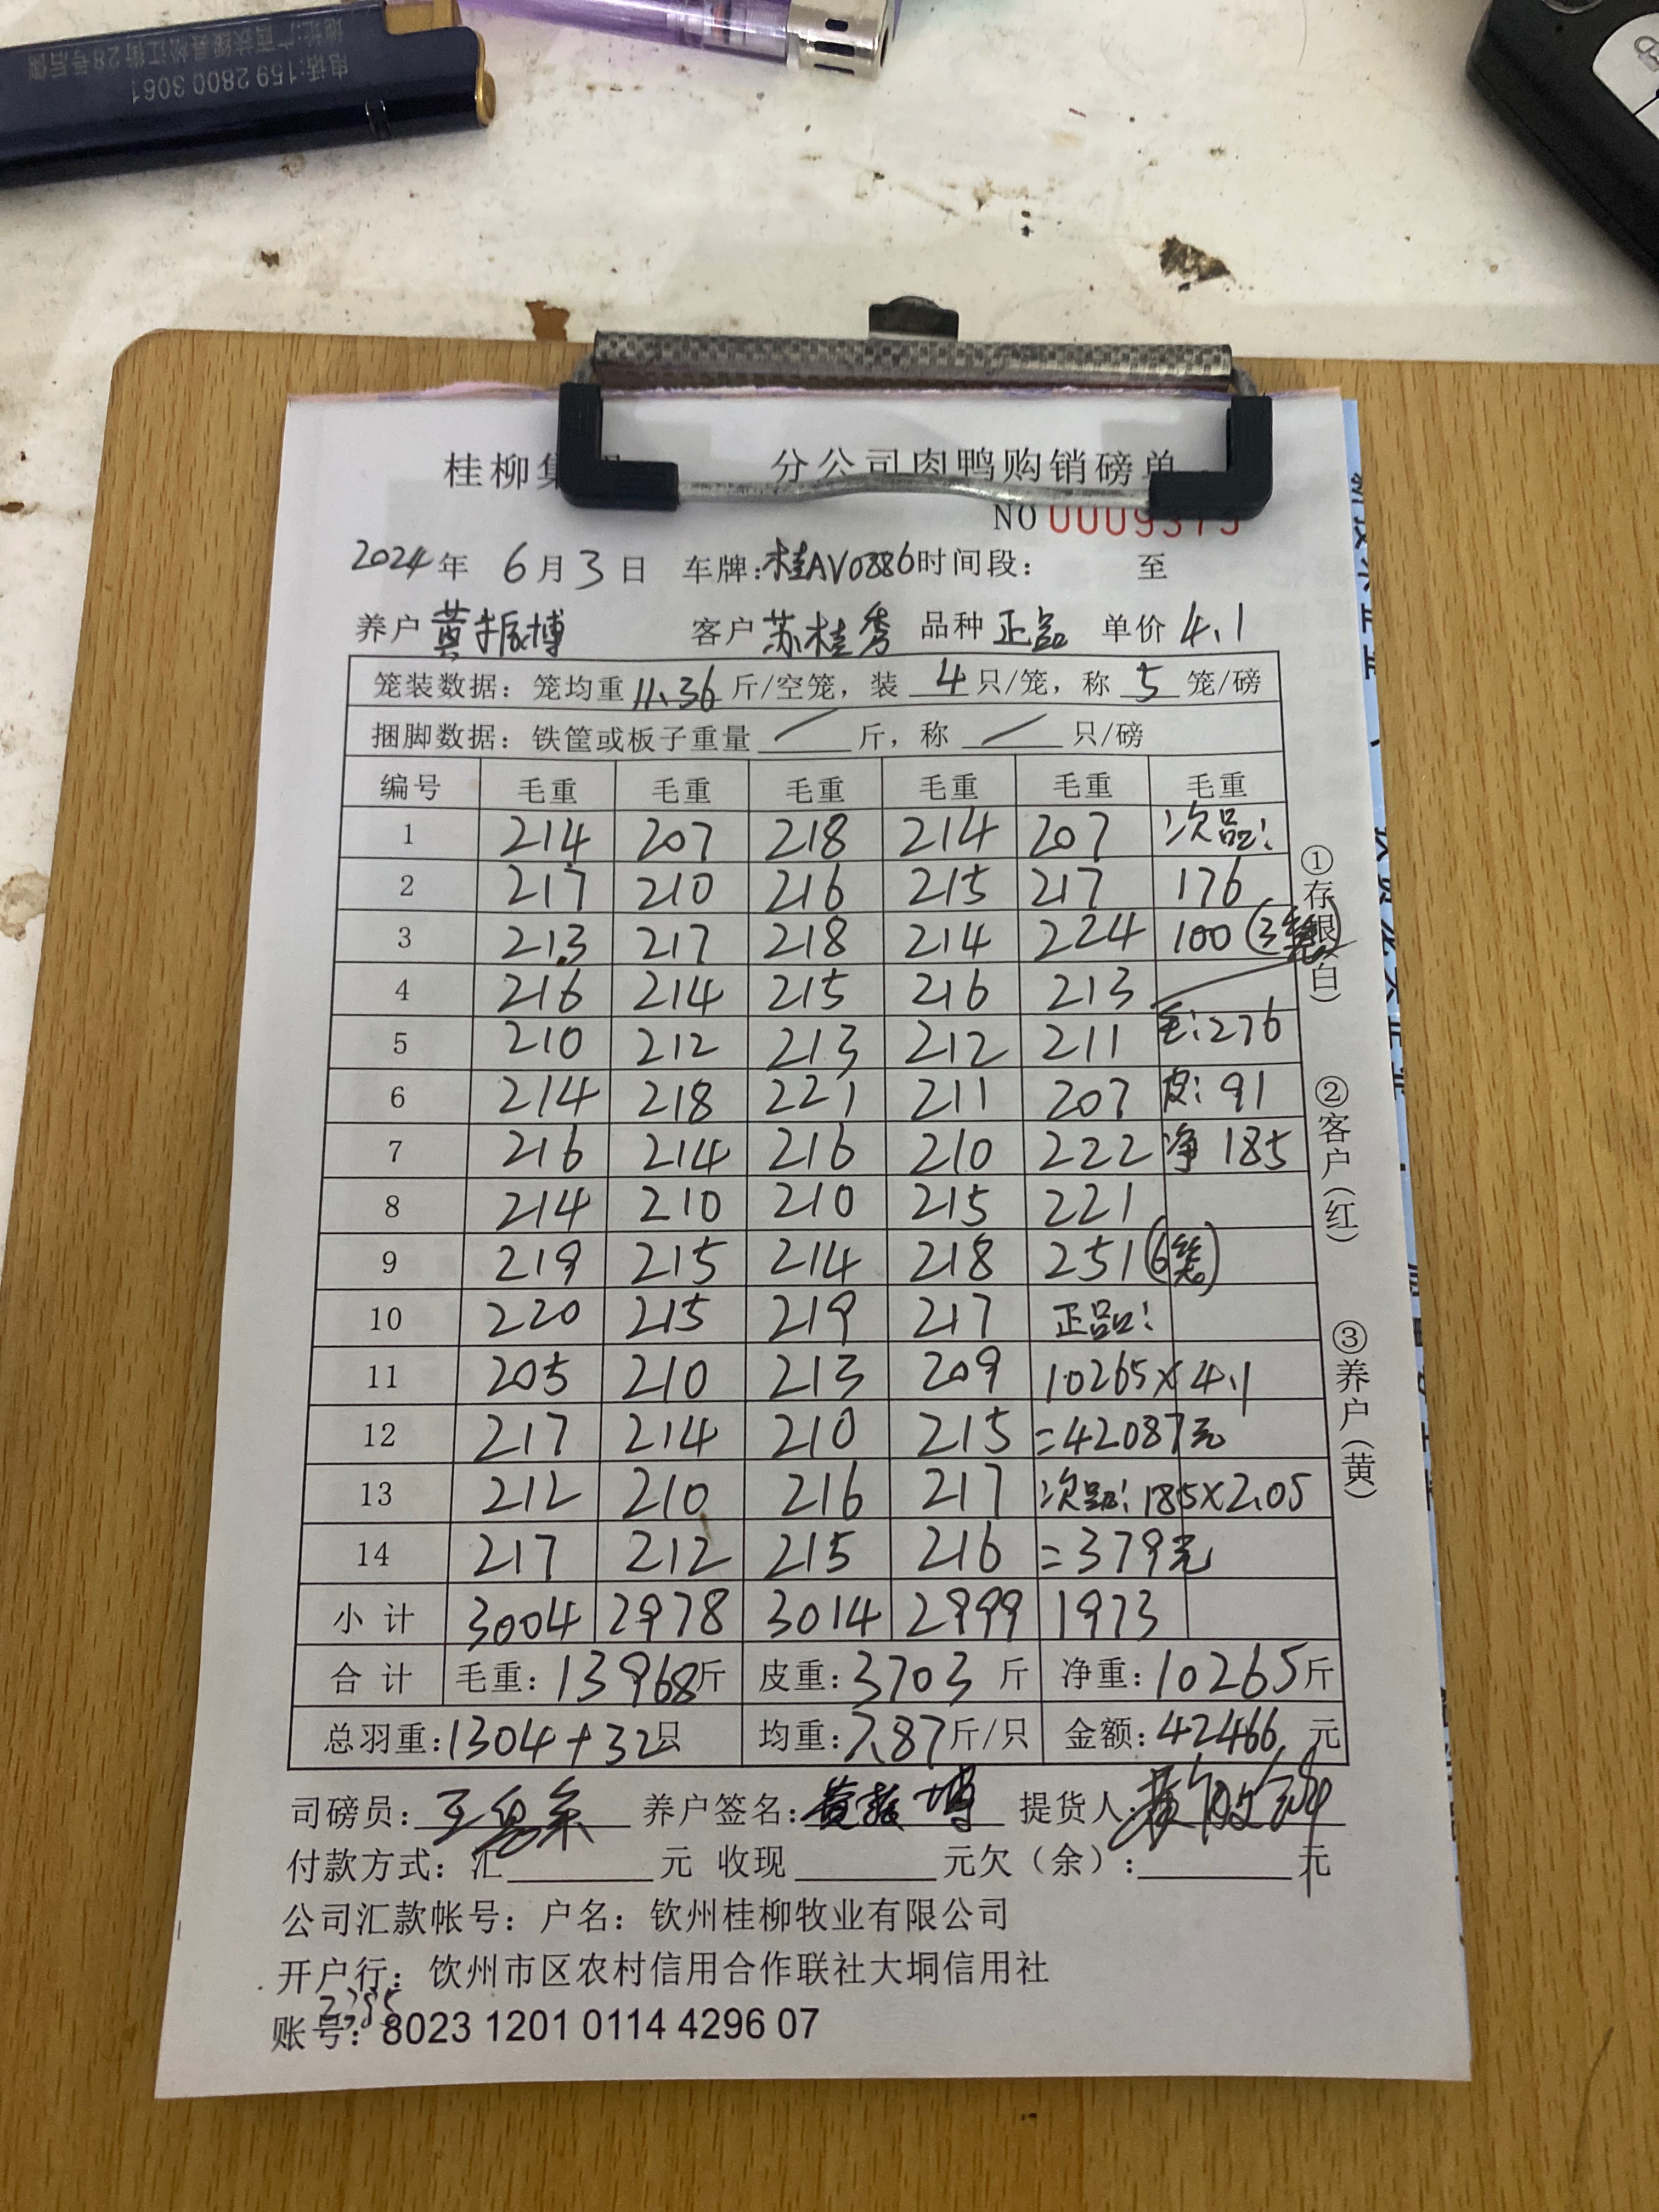 电话:159 2800 3061
地址:广西扶绥县松江街28号后侧
桂柳集 分公司肉鸭购销磅单
NO 0009375
2024年 6月3日 车牌:桂AV0886时间段: 至
养户 黄振博 客户 苏桂秀 品种 正品 单价 4.1
笼装数据:笼均重 11.36 斤/空笼,装 4 只/笼,称 5 笼/磅
捆脚数据:铁筐或板子重量 / 斤,称 / 只/磅
编号 毛重 毛重 毛重 毛重 毛重 毛重
1 214 207 218 214 207 次品:
2 217 210 216 215 217 176
3 213 217 218 214 224 100 (3笼)
4 216 214 215 216 213
5 210 212 213 212 211 毛:276
6 214 218 221 211 207 皮:91
7 216 214 216 210 222 净 185
8 214 210 210 215 221
9 219 215 214 218 251 (6笼)
10 220 215 219 217 正品:
11 205 210 213 209 10265×4.1
12 217 214 210 215 =42087元
13 212 210 216 217 次品:185×2.05
14 217 212 215 216 =379元
小计 3004 2978 3014 2999 1973
合计 毛重:13968斤 皮重:3703 斤 净重:10265斤
总羽重:1304+32只 均重:7.87斤/只 金额:42466 元
司磅员: 养户签名:黄振博 提货人:
付款方式:汇 元 收现 元欠(余): 元
公司汇款帐号:户名:钦州桂柳牧业有限公司
开户行:钦州市区农村信用合作联社大垌信用社
账号:8023 1201 0114 4296 07
①存根(白)
②客户(红)
③养户(黄)